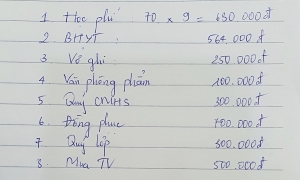 1 Học phí : 70 x 9 = 630.000đ
2 BHYT : 564.000đ
3 Vở ghi : 250.000đ
4 Văn phòng phẩm 100.000đ
5 Quỹ CMHS 300.000đ
6. Đồng phục 700.000đ
7 Quỹ lớp 300.000đ
8. Mua TV 500.000đ